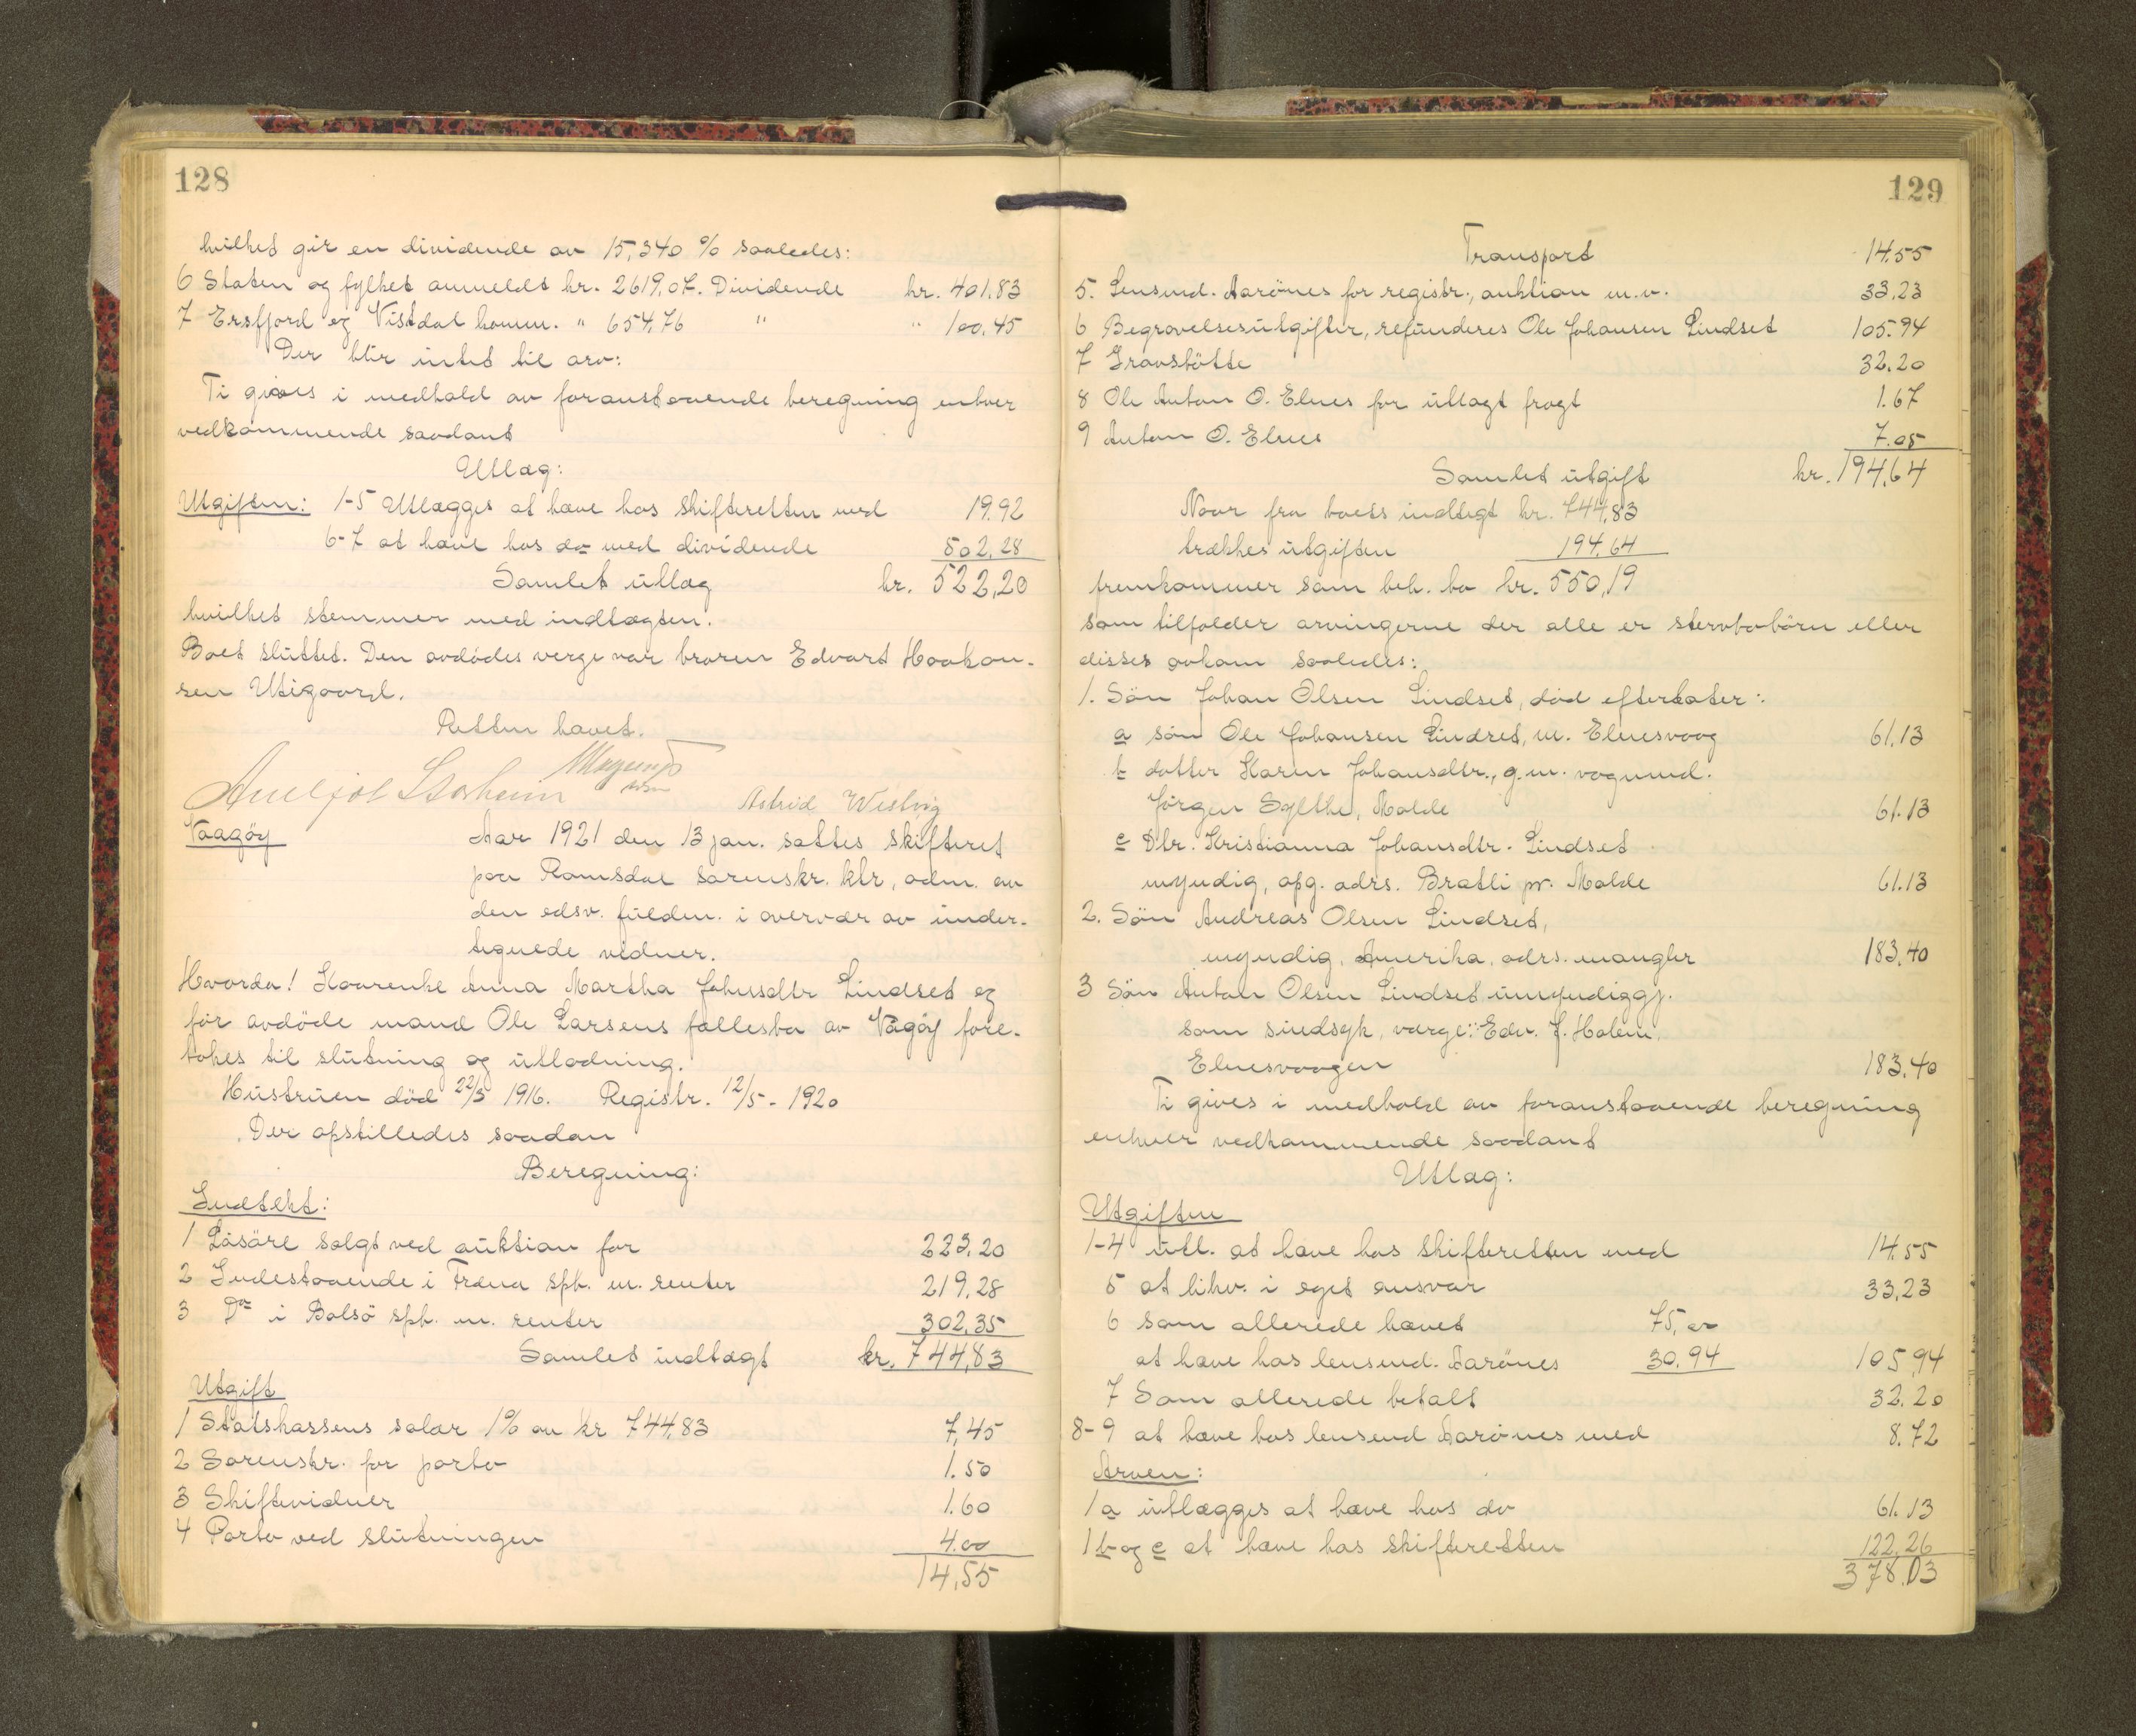 128
hvilket gir en dividende av 15,340 % saaledes:
6 Staten og fylket anmeldt kr. 2619,07. Dividende kr. 401.83
7 Eresfjord og Vistdal komm. " 654,76 " " 100,45
Der blir intet til arv:
Ti gives i medhold av foranstaaende beregning enhver
vedkommende saadant
Utlæg:
Utgiften: 1-5 Utlægges at hæve hos skifteretten med 19.92
6-7 at hæve hos do med dividende 502,28
Samlet utlæg kr. 522,20
hvilket stemmer med indtægten.
Boet sluttet. Den avdødes verge var broren Edvart Haakon-
sen Utigaard.
Retten hævet.
Storheim
Astrid Westvig
Vaagøy
Aar 1921 den 13 jan. sattes skifteret
paa Romsdal sorenskr. ktr, adm. av
den edsv. fuldm. i overvær av under-
tegnede vidner.
Hvorda! Kaarenke Anna Martha Johnsdtr Lindset og
før avdøde mand Ole Larsens fællesbo av Vågøy fore-
tokes til slutning og utlodning.
Hustruen død 22/3 1916. Registr. 12/5 - 1920
Der opstilledes saadan
Beregning:
Indtekt:
1 Løsøre solgt ved auktion for 223,20
2 Indestaaende i Fræna spb. m. renter 219,28
3 Do i Bolsø spb. m. renter 302,35
Samlet indtægt kr. 744,83
Utgift
1 Statskassens salær 1% av kr 744,83 7,45
2 Sorenskr. for porto 1.50
3 Skiftevidner 1.60
4 Porto ved slutningen 4.00
14,55
129
Transport 14.55
5. Lensmd. Aarönes for registr., auktion m.v. 33,23
6 Begravelsesutgifter, refunderes Ole Johansen Lindset 105.94
7 Gravstøtte 32.20
8 Ole Anton O. Elnes for utlagt fragt 1.67
9 Anton O. Elnes 7.05
Samlet utgift kr. 194,64
Naar fra boets indtægt kr. 744,83
trækkes utgiften 194,64
fremkommer som beh. bo kr. 550,19
som tilfalder arvingerne der alle er stervbobörn eller
disses avkom saaledes:
1. Sön Johan Olsen Lindset, död efterlater:
a sön Ole Johansen Lindset, m. Elnesvaag 61,13
b datter Karen Johansdtr., g.m. vognmd.
Jörgen Sylthe, Molde 61.13
c Dtr. Kristianna Johansdtr. Lindset
myndig, opg. adrs. Bratli pr. Molde 61.13
2. Sön Andreas Olsen Lindset,
myndig, Amerika, adrs. mangler 183,40
3 Sön Anton Olsen Lindset umyndiggj.
som sindsyk, værge: Edv. J. Holem,
Elnesvaagen 183.40
Ti gives i medhold av foranstaaende beregning
enhver vedkommende saadant
Utlæg:
Utgiften
1-4 utl. at hæve hos skifteretten med 14.55
5 at likv. i eget ansvar 33,23
6 som allerede hævet 75,00
at hæve hos lensmd. Aarönes 30.94 105,94
7 Som allerede betalt 32.20
8-9 at hæve hos lensmd Aarönes med 8.72
Arven:
1a utlægges at hæve hos do 61.13
1b og c at hæve hos skifteretten 122,26
378.03